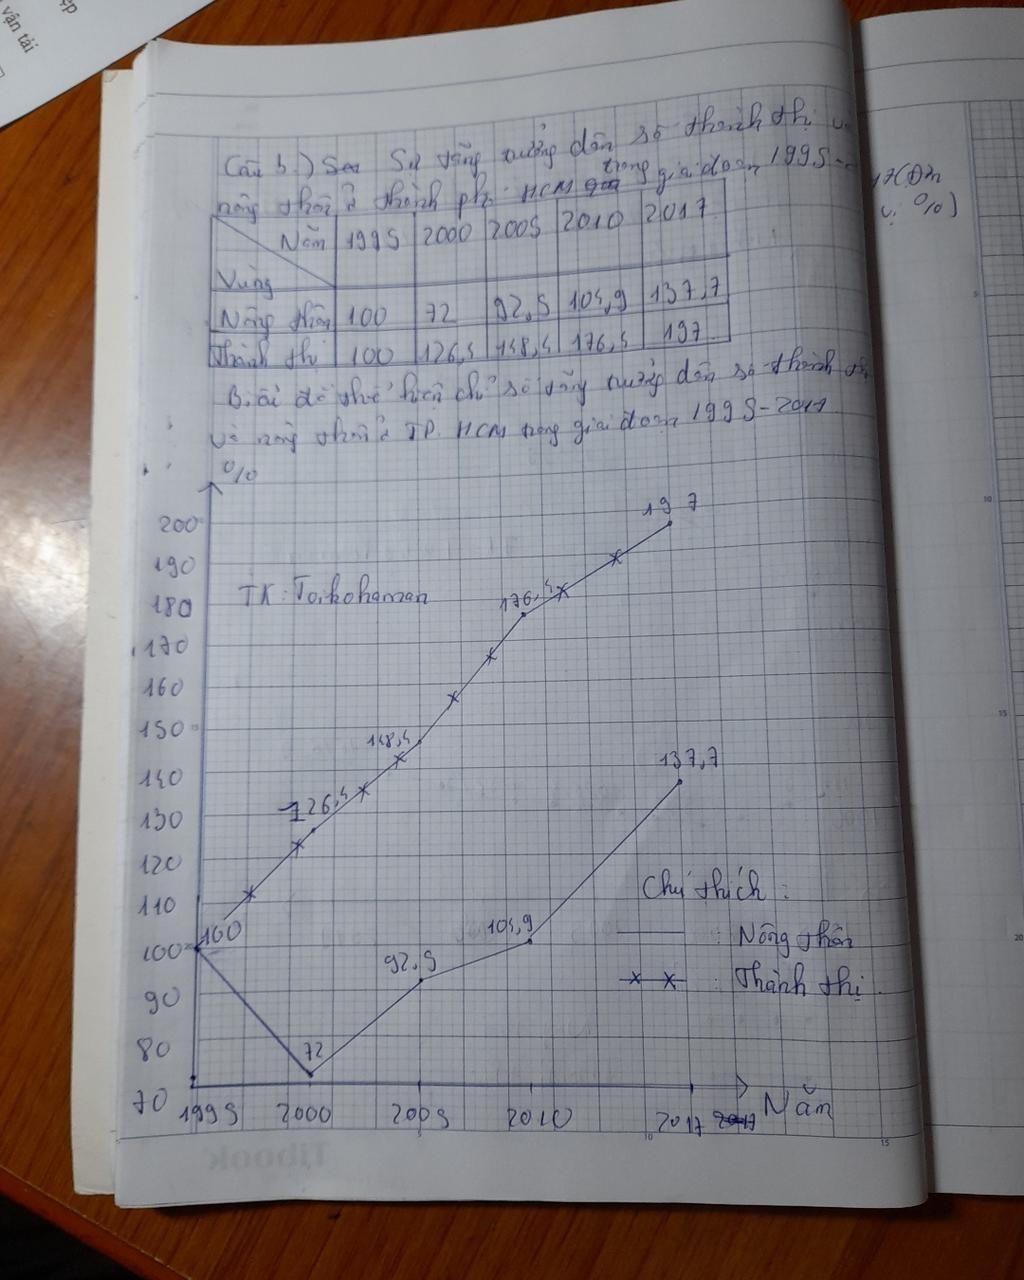 ẹp
vận tải
Câu b.) Sự tăng trưởng dân số thành thị
trong
nông thôn ở thành phố HCM giai đoạn 1995-
17 (Đơn
vị: %)
Năm 1995 2000 2005 2010 2017
Vùng
Nông thôn 100 72 92,5 104,9 137,7
Thành thị 100 126,4 148,4 176,4 197
Biểu đồ thể hiện chỉ số tăng trưởng dân số thành thị
và nông thôn ở TP. HCM trong giai đoạn 1995-2017
%
200
190
180
170
160
150
140
130
120
110
100
90
80
70
TK: Toikohaman
197
176,4
148,4
126,4
137,7
100
104,9
92,5
72
Chú thích:
: Nông thôn
: Thành thị
1995 2000 2005 2010 2017 Năm
Tjbook
5
10
15
20
10
15